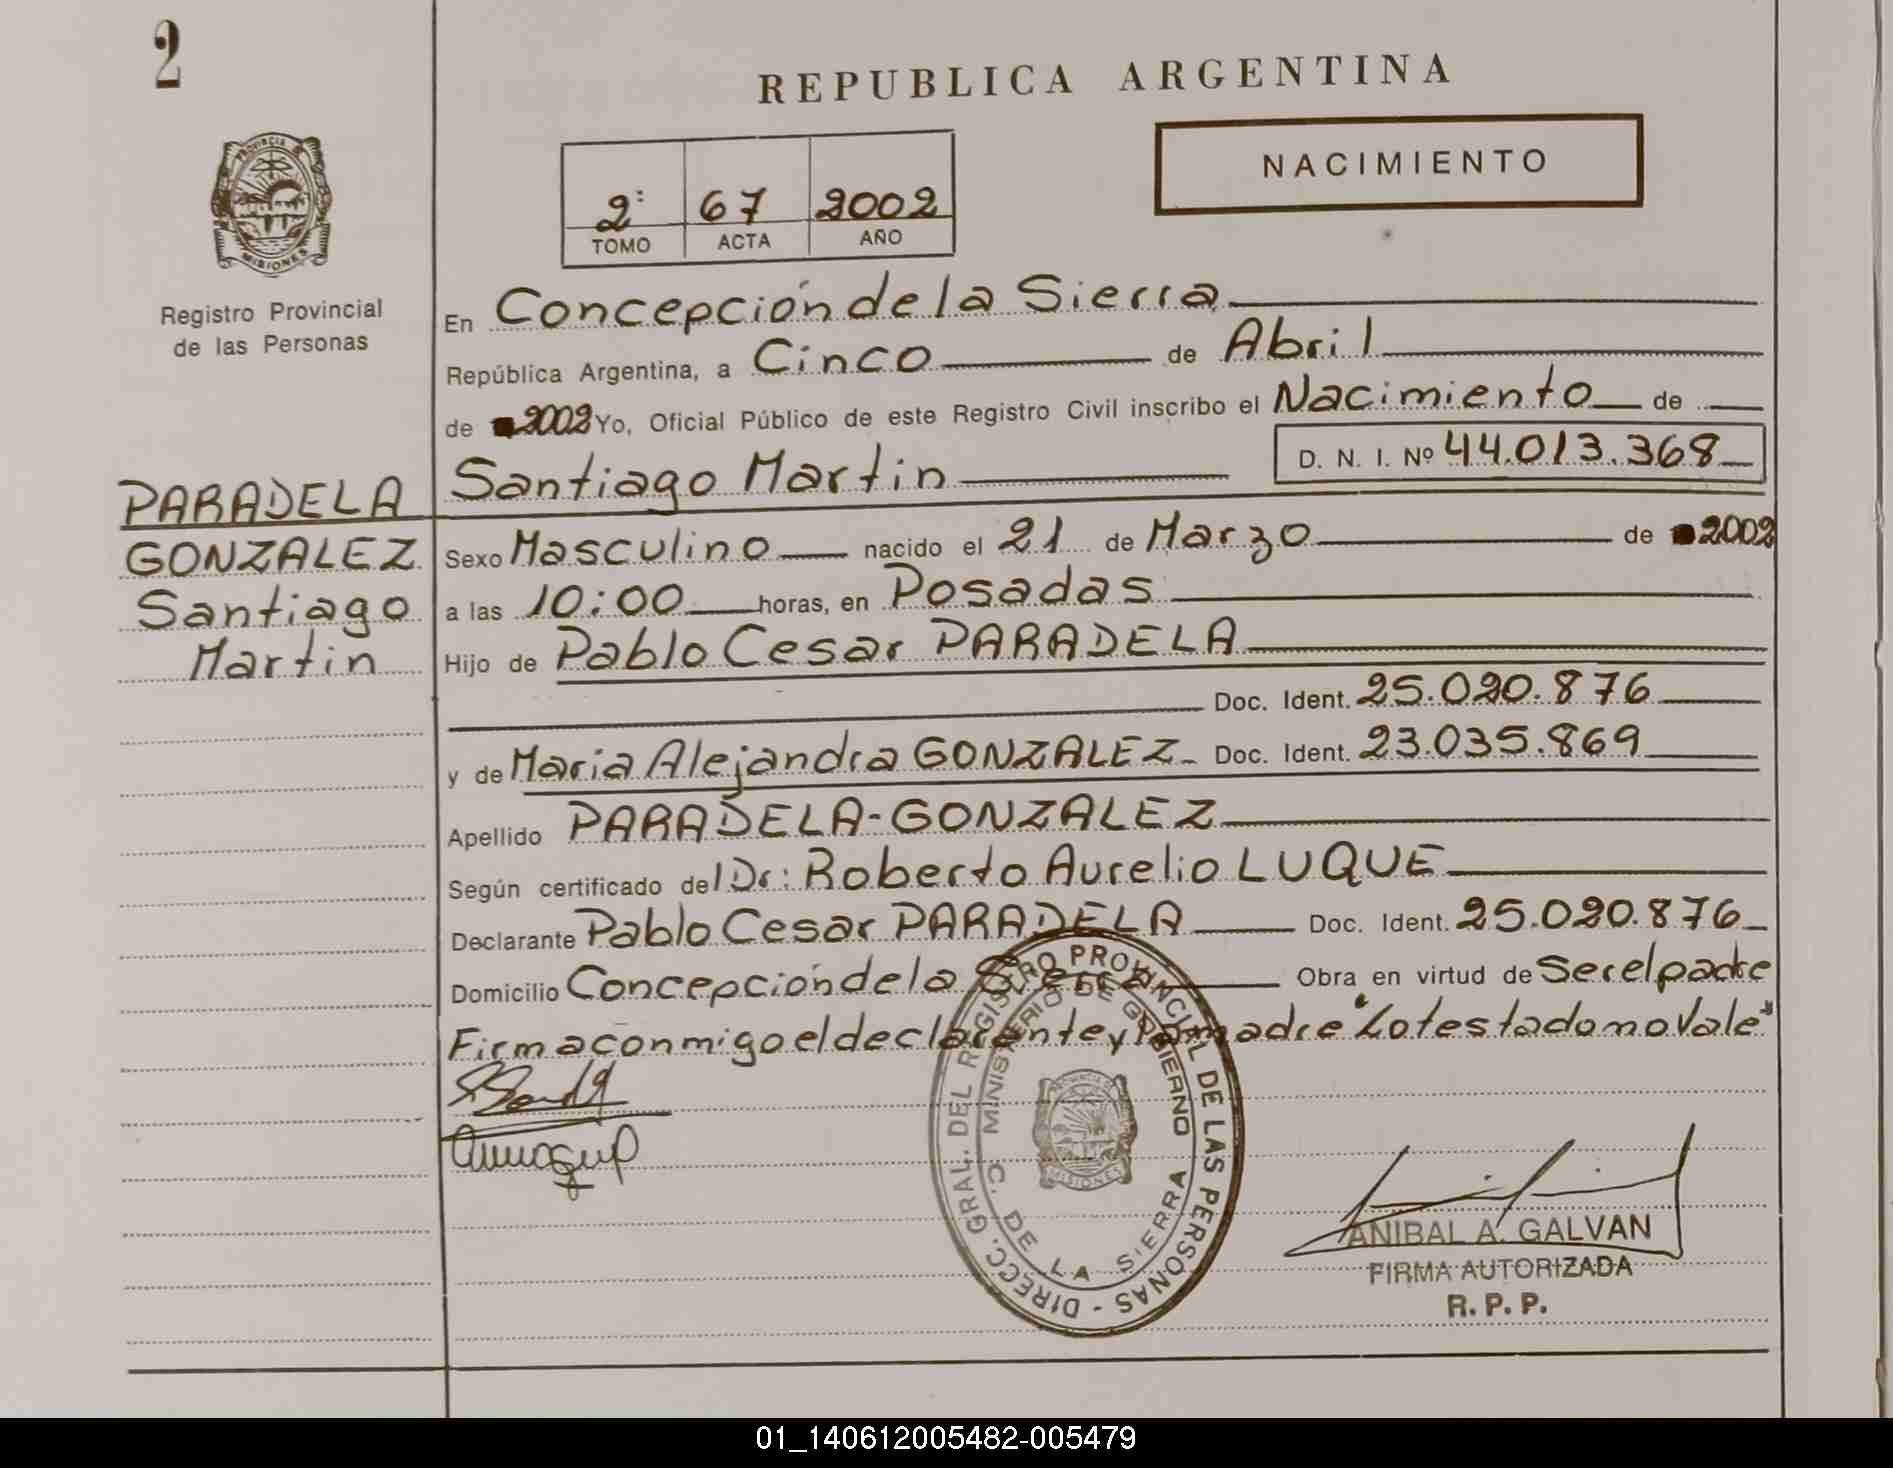 2
REPUBLICA ARGENTINA
NACIMIENTO
2º 67 2002
TOMO ACTA AÑO
PROVINCIA DE MISIONES
Registro Provincial
de las Personas
En Concepción de la Sierra
República Argentina, a Cinco de Abril
de 2002 Yo, Oficial Público de este Registro Civil inscribo el Nacimiento de
Santiago Martin D. N. I. Nº 44.013.368
PARADELA
GONZALEZ
Santiago
Martin
Sexo Masculino nacido el 21 de Marzo de 2002
a las 10:00 horas, en Posadas
Hijo de Pablo Cesar PARADELA
Doc. Ident. 25.020.876
y de Maria Alejandra GONZALEZ Doc. Ident. 23.035.869
Apellido PARADELA-GONZALEZ
Según certificado del Dr: Roberto Aurelio LUQUE
Declarante Pablo Cesar PARADELA Doc. Ident. 25.020.876
Domicilio Concepción de la Sierra Obra en virtud de Ser el padre
Firma conmigo el declarante y la madre "Lo testado no Vale"
DIRECC. GRAL. DEL REGISTRO PROVINCIAL DE LAS PERSONAS -
MINISTERIO DE GOBIERNO
C. DE LA SIERRA
PROVINCIA DE MISIONES
ANIBAL A. GALVAN
FIRMA AUTORIZADA
R. P. P.
01_140612005482-005479